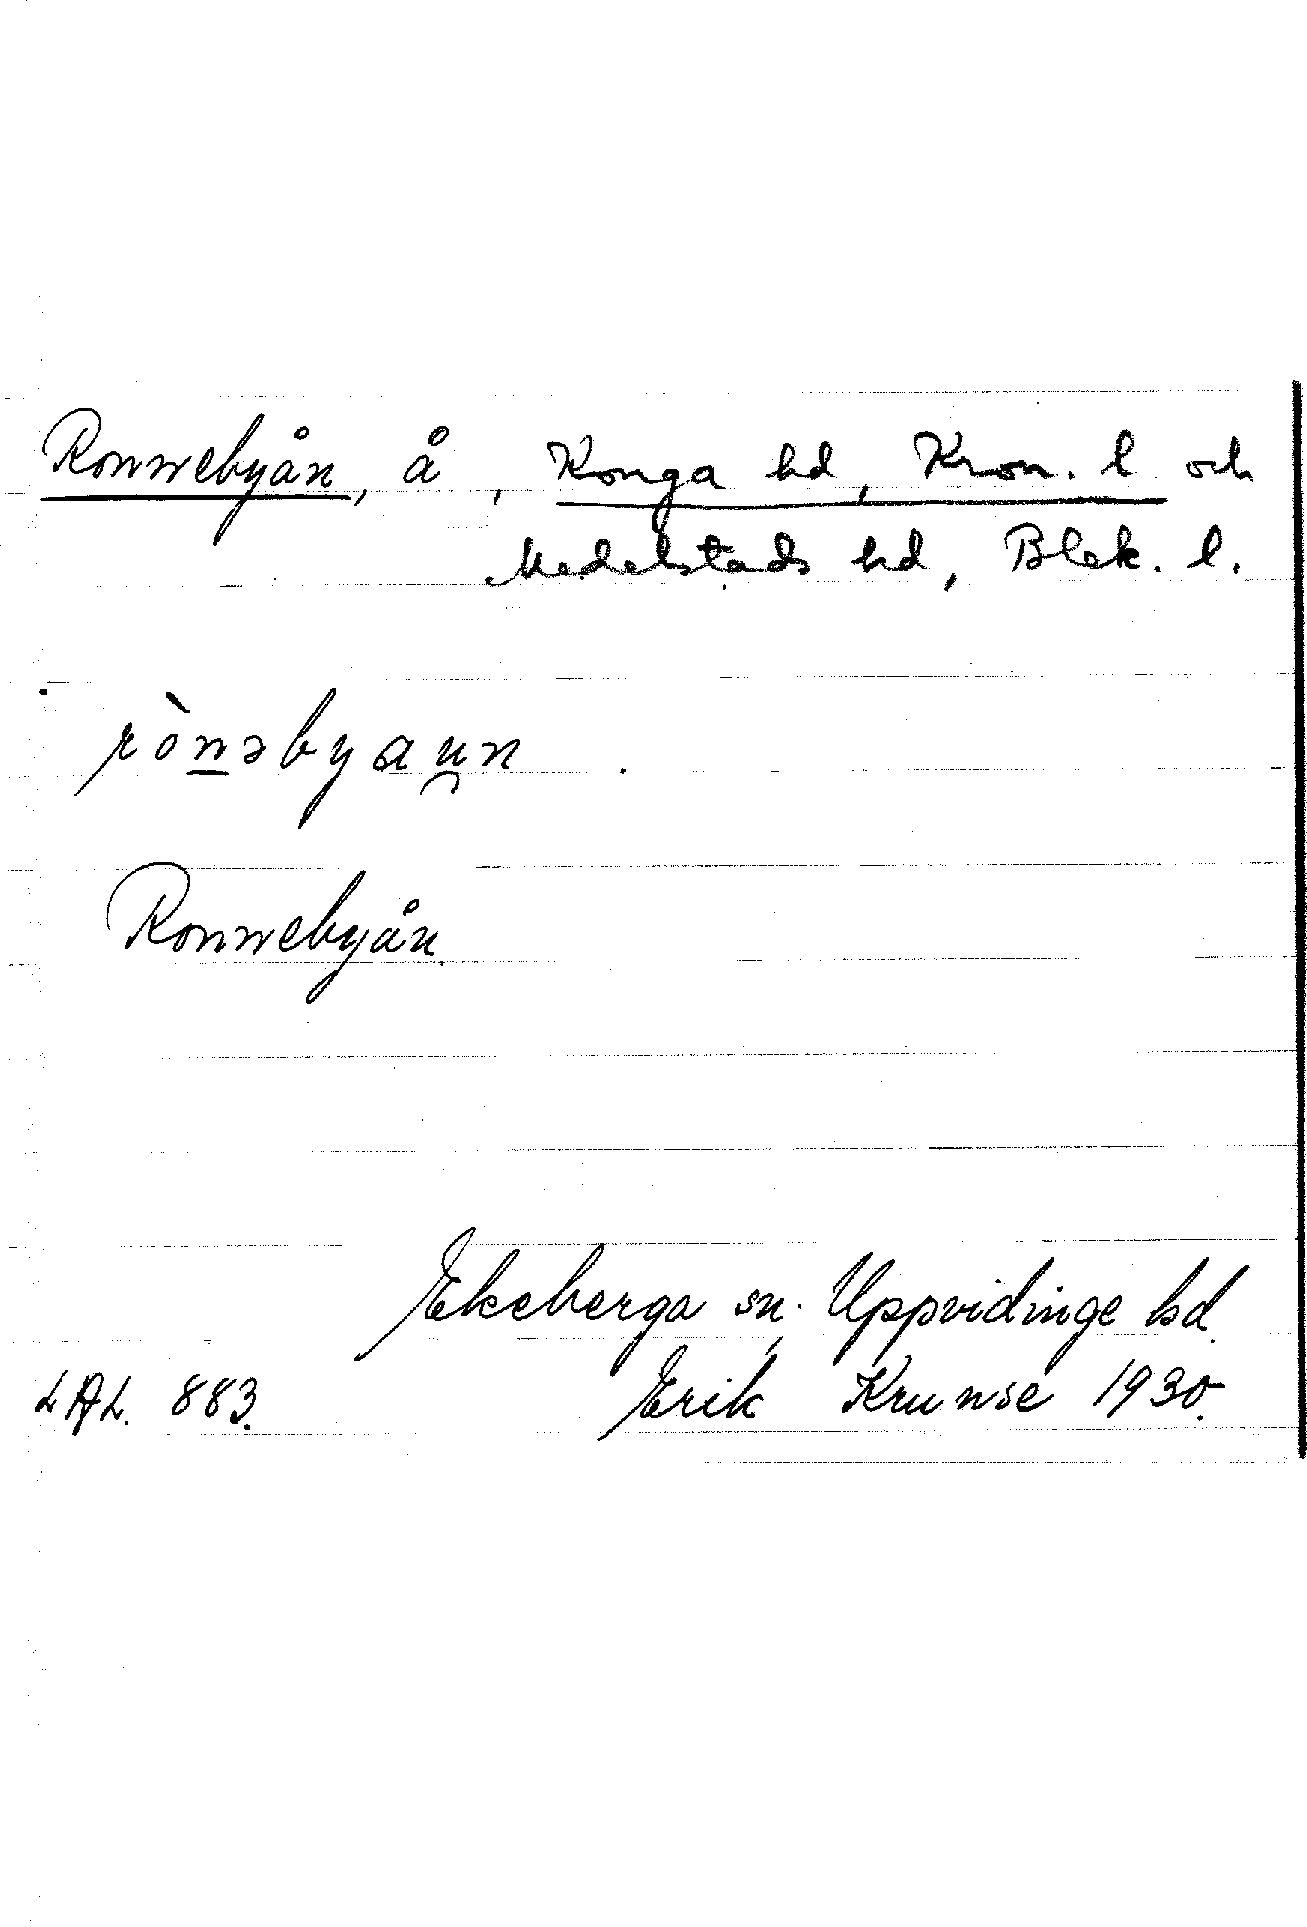 Ronnebyån, å, Konga hd, Kron. l och
Medelstads hd, Blek. l.
rònəbyau̯n.
Ronnebyån.
Ekeberga sn. Uppvidinge hd.
LAL. 883. Erik Krunse 1930.